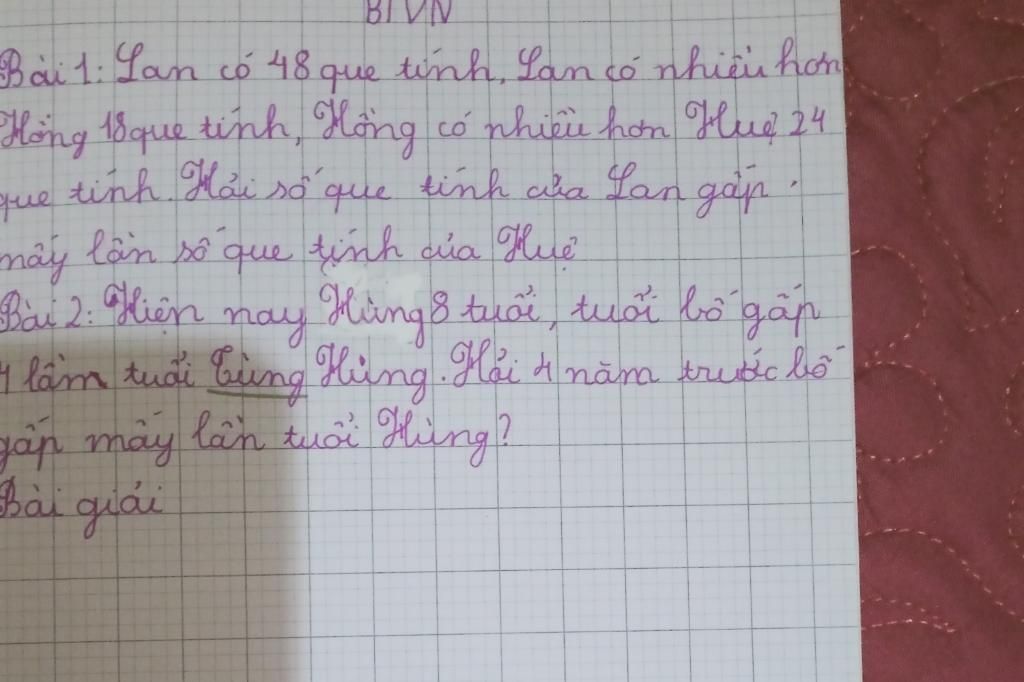 BTVN
Bài 1: Lan có 48 que tính. Lan có nhiều hơn
Hồng 18 que tính, Hồng có nhiều hơn Huệ 24
que tính. Hỏi số que tính của Lan gấp
mấy lần số que tính của Huệ
Bài 2: Hiện nay Hùng 8 tuổi, tuổi bố gấp
4 lần tuổi Cùng Hùng. Hỏi 4 năm trước bố
gấp mấy lần tuổi Hùng?
Bài giải